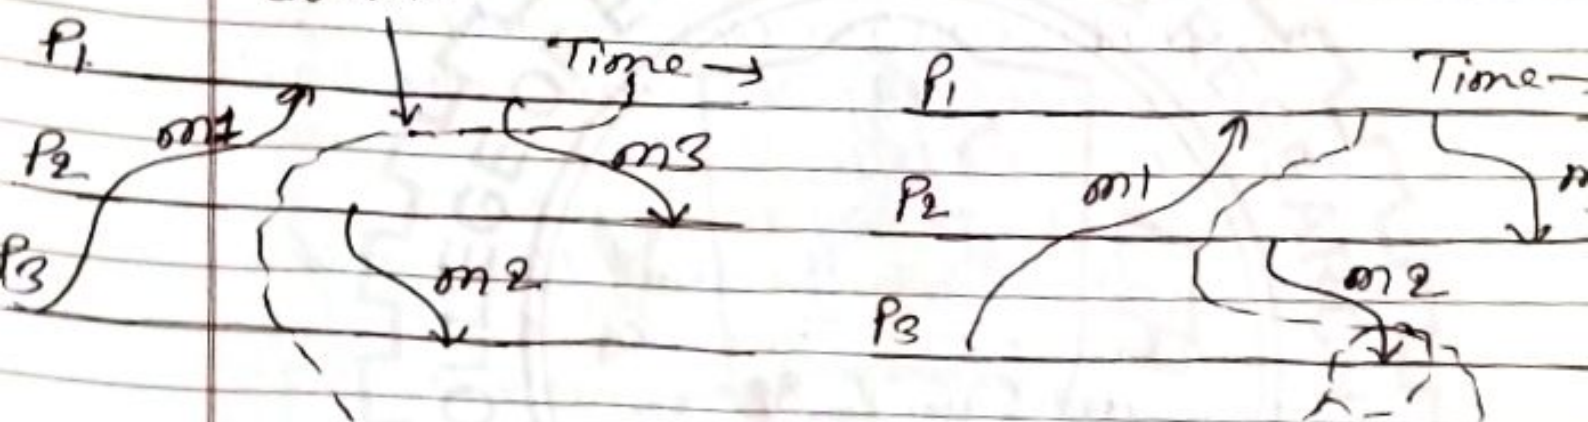 P1 Time →
m1
P2 m3
P3 m2
P1 Time
P2 m1
P3 m2